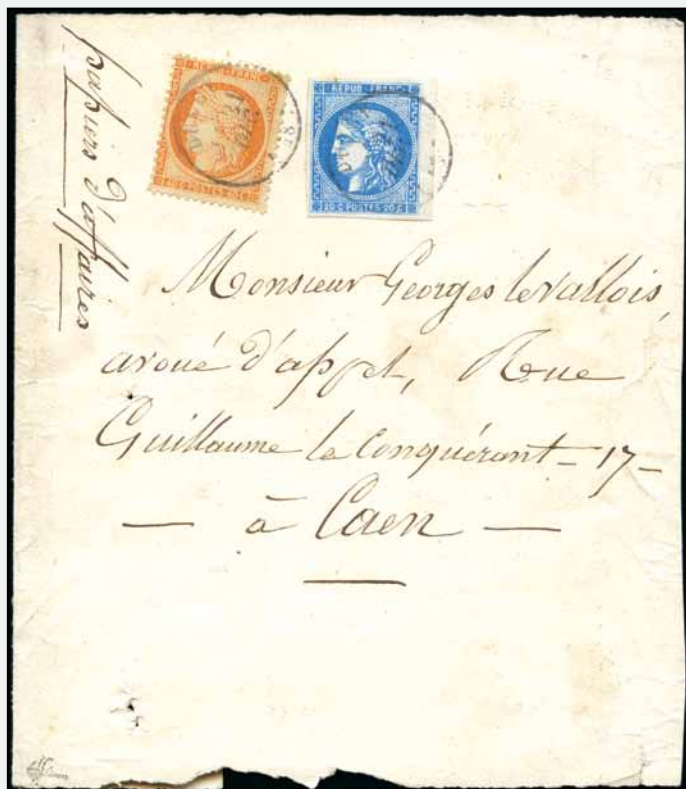 papiers d'affaires
REPUB·FRANC
40 C·POSTES·40 C
REPUB·FRANC
20 C·POSTES·20 C
Monsieur Georges levallois,
avoué d'appel, Rue
Guillaume le Conquérant – 17 –
— à Caen —